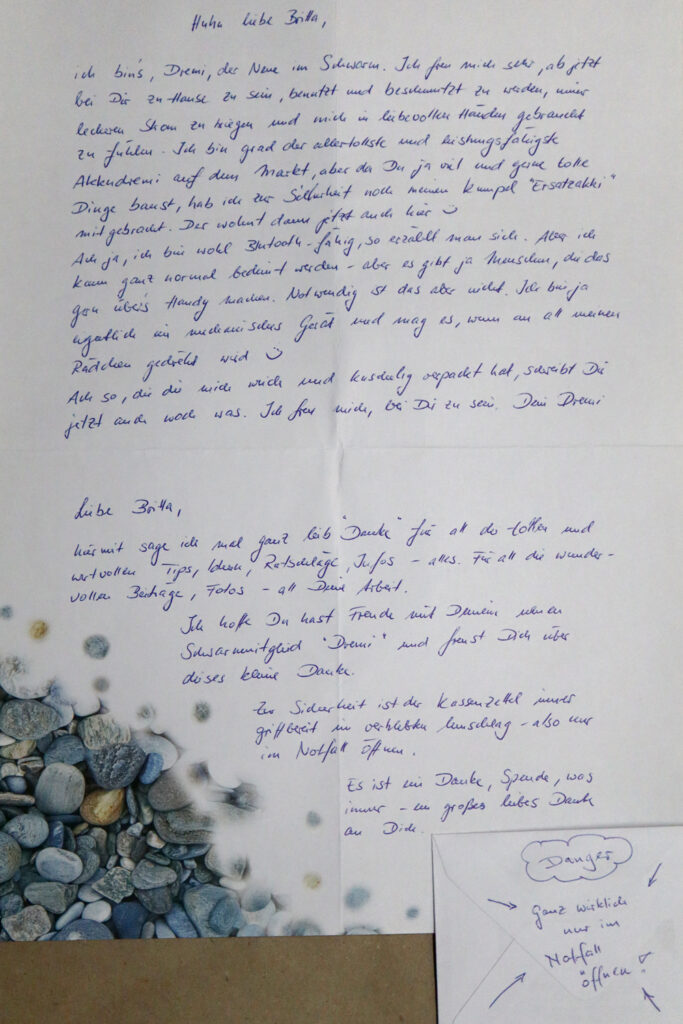 Huhu liebe Britta,
ich bin's, Dremi, der Neue im Schwarm. Ich freu mich sehr, ab jetzt
bei Dir zu Hause zu sein, benutzt und beschmutzt zu werden, immer
leckeren Strom zu kriegen und mich in liebevollen Händen gebraucht
zu fühlen. Ich bin grad der allertollste und leistungsfähigste
Akkudremi auf dem Markt, aber da Du ja viel und gerne tolle
Dinge baust, hab ich zur Sicherheit noch meinen Kumpel "Ersatzakki"
mitgebracht. Der wohnt dann jetzt auch hier ☺
Ach ja, ich bin wohl Blutooth-fähig, so erzählt man sich. Aber ich
kann ganz normal bedient werden - aber es gibt ja Menschen, die das
gern über's Handy machen. Notwendig ist das aber nicht. Ich bin ja
eigentlich ein mechanisches Gerät und mag es, wenn an all meinen
Rädchen gedreht wird ☺
Ach so, die die mich weich und kuschelig verpackt hat, schreibt Dir
jetzt auch noch was. Ich freu mich, bei Dir zu sein. Dein Dremi
Liebe Britta,
hiermit sage ich mal ganz lieb "Danke" für all die tollen und
wertvollen Tips, Ideen, Ratschläge, Infos - alles. Für all die wunder-
vollen Beiträge, Fotos - all Deine Arbeit.
Ich hoffe Du hast Freude mit Deinem neuen
Schwarmmitglied "Dremi" und freust Dich über
dieses kleine Danke.
Zur Sicherheit ist der Kassenzettel immer
griffbereit im verklebten Umschlag - also nur
im Notfall öffnen.
Es ist ein Danke, Spende, was
immer - ein großes liebes Dank
an Dich.
Danger
Ganz wirklich
nur im
Notfall
öffnen!